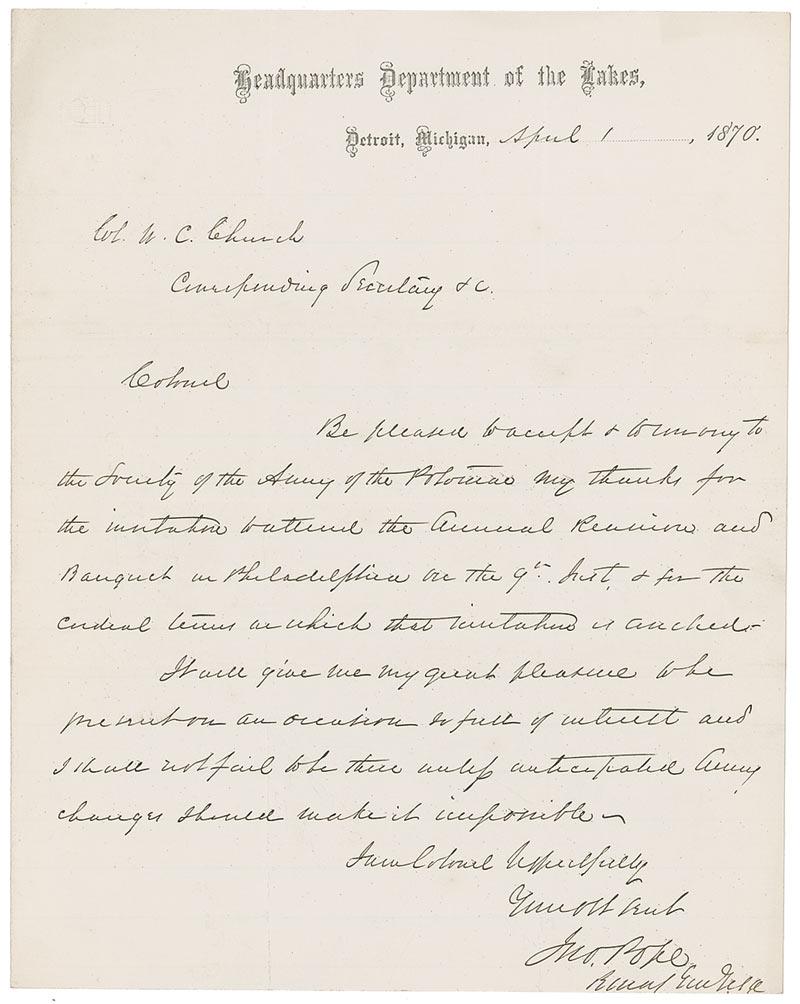 Headquarters Department of the Lakes,
Detroit, Michigan, April 1, 1870.
Col. W. C. Church
Corresponding Secretary &c.
Colonel
Be pleased to accept & to convey to
the Society of the Army of the Potomac my thanks for
the invitation to attend the Annual Reunion and
Banquet in Philadelphia on the 9th. Inst, & for the
cordial terms in which that invitation is couched.-
It will give me very great pleasure to be
present on an occasion so full of interest and
I shall not fail to be there unless anticipated Army
changes should make it impossible-
I am Colonel Respectfully
Your Obt Servt
Jno. Pope
Brevet Maj Genl U.S.A